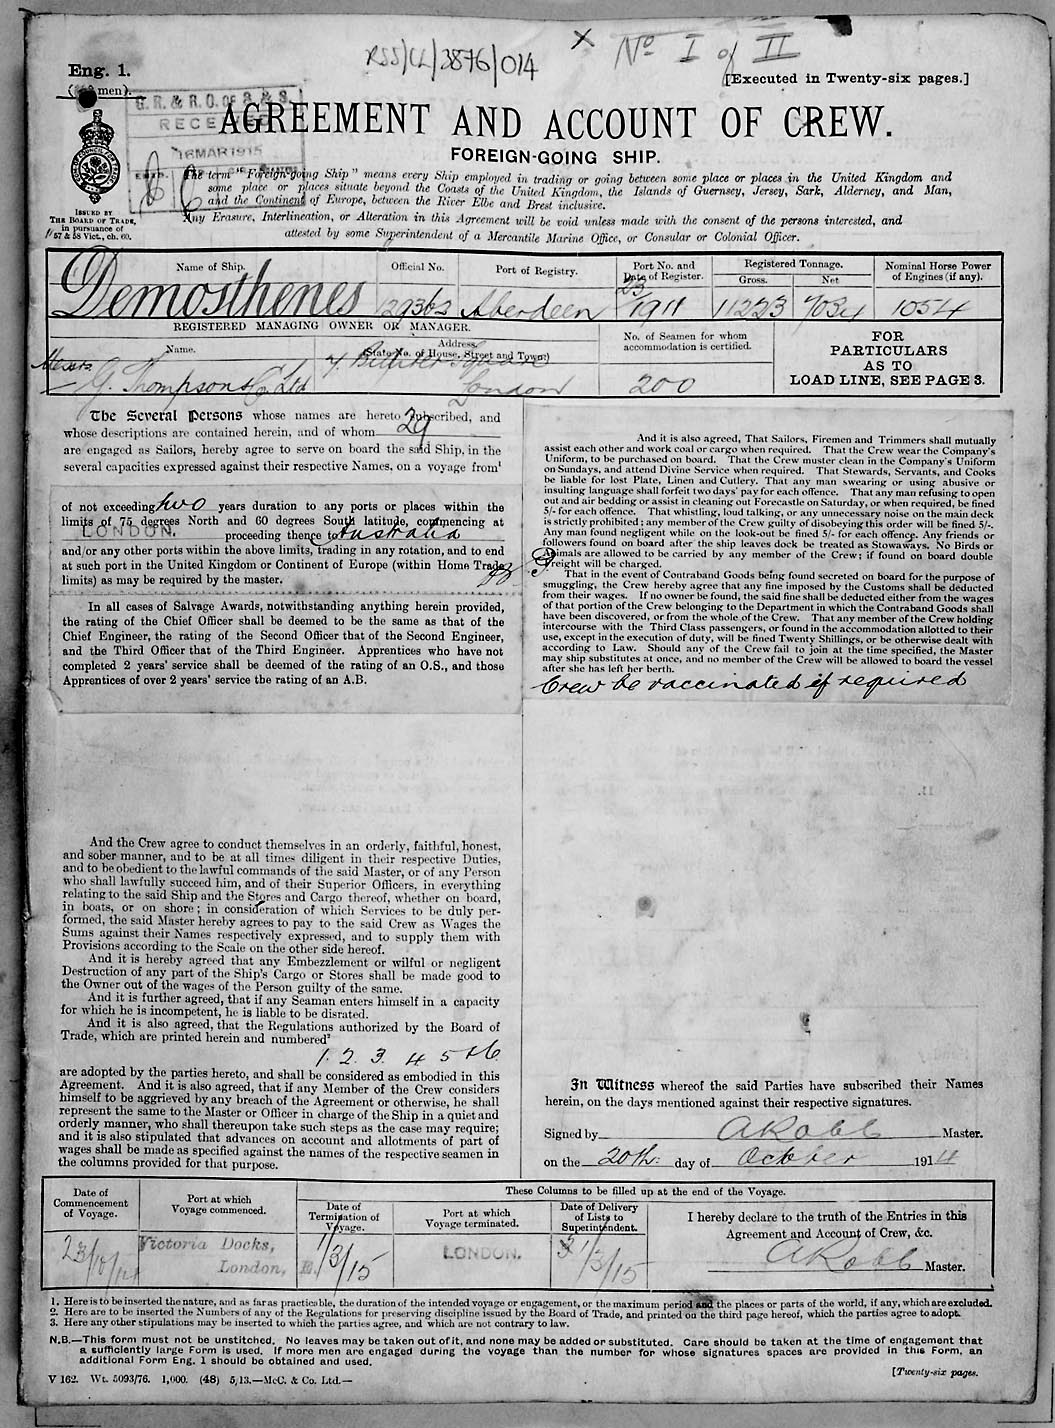 RSS/CL/3876/014
X No I of II
Eng. 1.
[Executed in Twenty-six pages.]
men).
G. R. & R. O. OF S. & S.
RECEIVED
16 MAR 1915
AGREEMENT AND ACCOUNT OF CREW.
FOREIGN-GOING SHIP.
The term "Foreign-going Ship" means every Ship employed in trading or going between some place or places in the United Kingdom and
some place or places situate beyond the Coasts of the United Kingdom, the Islands of Guernsey, Jersey, Sark, Alderney, and Man,
and the Continent of Europe, between the River Elbe and Brest inclusive.
Any Erasure, Interlineation, or Alteration in this Agreement will be void unless made with the consent of the persons interested, and
attested by some Superintendent of a Mercantile Marine Office, or Consular or Colonial Officer.
ISSUED BY
THE BOARD OF TRADE,
in pursuance of
57 & 58 Vict., ch. 60.
Name of Ship. Official No. Port of Registry. Port No. and Date of Register. Registered Tonnage. Gross. Net Nominal Horse Power of Engines (if any).
Demosthenes 129362 Aberdeen 23 1911 11223 7034 1054
REGISTERED MANAGING OWNER OR MANAGER.
Name. Address. (State No. of House, Street and Town)
No. of Seamen for whom accommodation is certified.
FOR
PARTICULARS
AS TO
LOAD LINE, SEE PAGE 3.
Messrs G. Thompson & Co. Ltd 7. Billiter Square London 200
The Several Persons whose names are hereto subscribed, and
whose descriptions are contained herein, and of whom 29
are engaged as Sailors, hereby agree to serve on board the said Ship, in the
several capacities expressed against their respective Names, on a voyage from¹
of not exceeding two years duration to any ports or places within the
limits of 75 degrees North and 60 degrees South latitude, commencing at
LONDON. proceeding thence to Australia
and/or any other ports within the above limits, trading in any rotation, and to end
at such port in the United Kingdom or Continent of Europe (within Home Trade
limits) as may be required by the master.
In all cases of Salvage Awards, notwithstanding anything herein provided,
the rating of the Chief Officer shall be deemed to be the same as that of the
Chief Engineer, the rating of the Second Officer that of the Second Engineer,
and the Third Officer that of the Third Engineer. Apprentices who have not
completed 2 years' service shall be deemed of the rating of an O.S., and those
Apprentices of over 2 years' service the rating of an A.B.
And the Crew agree to conduct themselves in an orderly, faithful, honest,
and sober manner, and to be at all times diligent in their respective Duties,
and to be obedient to the lawful commands of the said Master, or of any Person
who shall lawfully succeed him, and of their Superior Officers, in everything
relating to the said Ship and the Stores and Cargo thereof, whether on board,
in boats, or on shore; in consideration of which Services to be duly per-
formed, the said Master hereby agrees to pay to the said Crew as Wages the
Sums against their Names respectively expressed, and to supply them with
Provisions according to the Scale on the other side hereof.
And it is hereby agreed that any Embezzlement or wilful or negligent
Destruction of any part of the Ship's Cargo or Stores shall be made good to
the Owner out of the wages of the Person guilty of the same.
And it is further agreed, that if any Seaman enters himself in a capacity
for which he is incompetent, he is liable to be disrated.
And it is also agreed, that the Regulations authorized by the Board of
Trade, which are printed herein and numbered²
1. 2. 3. 4 5 & 6
are adopted by the parties hereto, and shall be considered as embodied in this
Agreement. And it is also agreed, that if any Member of the Crew considers
himself to be aggrieved by any breach of the Agreement or otherwise, he shall
represent the same to the Master or Officer in charge of the Ship in a quiet and
orderly manner, who shall thereupon take such steps as the case may require;
and it is also stipulated that advances on account and allotments of part of
wages shall be made as specified against the names of the respective seamen in
the columns provided for that purpose.
And it is also agreed, That Sailors, Firemen and Trimmers shall mutually
assist each other and work coal or cargo when required. That the Crew wear the Company's
Uniform, to be purchased on board. That the Crew muster clean in the Company's Uniform
on Sundays, and attend Divine Service when required. That Stewards, Servants, and Cooks
be liable for lost Plate, Linen and Cutlery. That any man swearing or using abusive or
insulting language shall forfeit two days' pay for each offence. That any man refusing to open
out and air bedding or assist in cleaning out Forecastle on Saturday, or when required, be fined
5/- for each offence. That whistling, loud talking, or any unnecessary noise on the main deck
is strictly prohibited; any member of the Crew guilty of disobeying this order will be fined 5/-.
Any man found negligent while on the look-out be fined 5/- for each offence. Any friends or
followers found on board after the ship leaves dock be treated as Stowaways. No Birds or
Animals are allowed to be carried by any member of the Crew; if found on board double
Freight will be charged.
That in the event of Contraband Goods being found secreted on board for the purpose of
smuggling, the Crew hereby agree that any fine imposed by the Customs shall be deducted
from their wages. If no owner be found, the said fine shall be deducted either from the wages
of that portion of the Crew belonging to the Department in which the Contraband Goods shall
have been discovered, or from the whole of the Crew. That any member of the Crew holding
intercourse with the Third Class passengers, or found in the accommodation allotted to their
use, except in the execution of duty, will be fined Twenty Shillings, or be otherwise dealt with
according to Law. Should any of the Crew fail to join at the time specified, the Master
may ship substitutes at once, and no member of the Crew will be allowed to board the vessel
after she has left her berth.
Crew be vaccinated if required
In Witness whereof the said Parties have subscribed their Names
herein, on the days mentioned against their respective signatures.
Signed by A Robb Master.
on the 20th. day of October 1914
Date of Commencement of Voyage. Port at which Voyage commenced. These Columns to be filled up at the end of the Voyage.
Date of Termination of Voyage. Port at which Voyage terminated. Date of Delivery of Lists to Superintendent.
I hereby declare to the truth of the Entries in this
Agreement and Account of Crew, &c.
A Robb Master.
23/10/14 Victoria Docks, London, E. 1/3/15 LONDON. 1/3/15
1. Here is to be inserted the nature, and as far as practicable, the duration of the intended voyage or engagement, or the maximum period and the places or parts of the world, if any, which are excluded.
2. Here are to be inserted the Numbers of any of the Regulations for preserving discipline issued by the Board of Trade, and printed on the third page hereof, which the parties agree to adopt.
3. Here any other stipulations may be inserted to which the parties agree, and which are not contrary to law.
N.B.—This form must not be unstitched. No leaves may be taken out of it, and none may be added or substituted. Care should be taken at the time of engagement that
a sufficiently large Form is used. If more men are engaged during the voyage than the number for whose signatures spaces are provided in this Form, an
additional Form Eng. 1 should be obtained and used.
V 162. Wt. 5093/76. 1,000. (48) 5/13.—McC. & Co. Ltd.—
[Twenty-six pages.